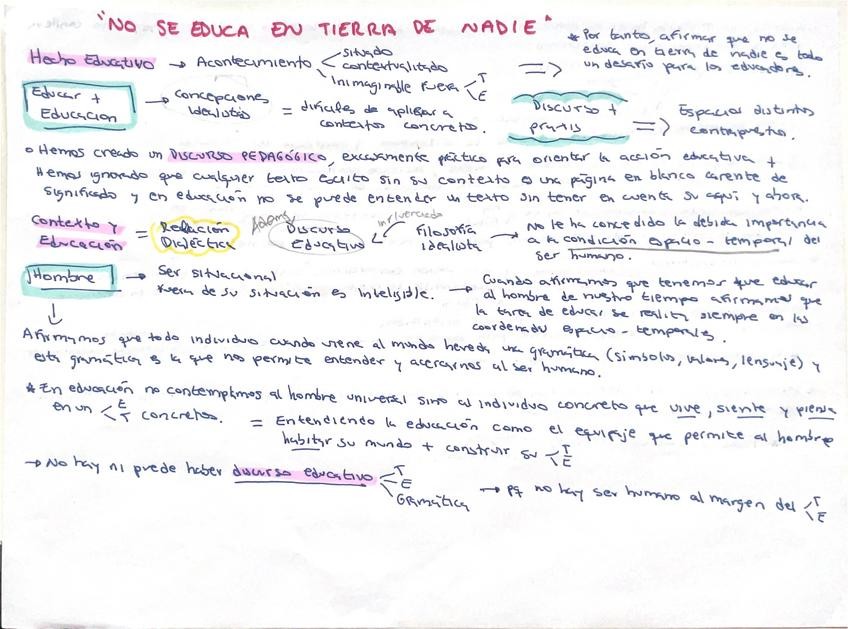 "NO SE EDUCA EN TIERRA DE NADIE"
Hecho Educativo → Acontecimiento
situado
contextualizado
Inimaginable fuera T E
⇒
* Por tanto, afirmar que no se
educa en tierra de nadie es todo
un desafío para los educadores.
Educar +
Educación
→ Concepciones
idealistas
= difíciles de aplicar a
contextos concretos.
Discurso +
praxis
⇒ Espacios distintos
contrapuestos.
o Hemos creado un DISCURSO PEDAGÓGICO, excesivamente práctico para orientar la acción educativa +
Hemos ignorado que cualquier texto escrito sin su contexto es una página en blanco carente de
significado y en educación no se puede entender un texto sin tener en cuenta su aquí y ahora.
Contexto y
Educación
= Relación
Dialéctica
Además
Discurso
Educativo
influenciado
Filosofía
idealista
→ No le ha concedido la debida importancia
a la condición espacio-temporal del
ser humano.
Hombre → Ser situacional
fuera de su situación es inteligible.
→ Cuando afirmamos que tenemos que educar
al hombre de nuestro tiempo afirmamos que
la tarea de educar se realiza siempre en las
coordenadas espacio-temporales.
↓
Afirmamos que todo individuo cuando viene al mundo hereda una gramática (símbolos, valores, lenguaje) y
esta gramática es la que nos permite entender y acercarnos al ser humano.
* En educación no contemplamos al hombre universal sino al individuo concreto que vive, siente y piensa
en un E T concretos.
= Entendiendo la educación como el equipaje que permite al hombre
habitar su mundo + construir su T E
→ No hay ni puede haber discurso educativo
T
E
Gramática
→ pq no hay ser humano al margen del T E